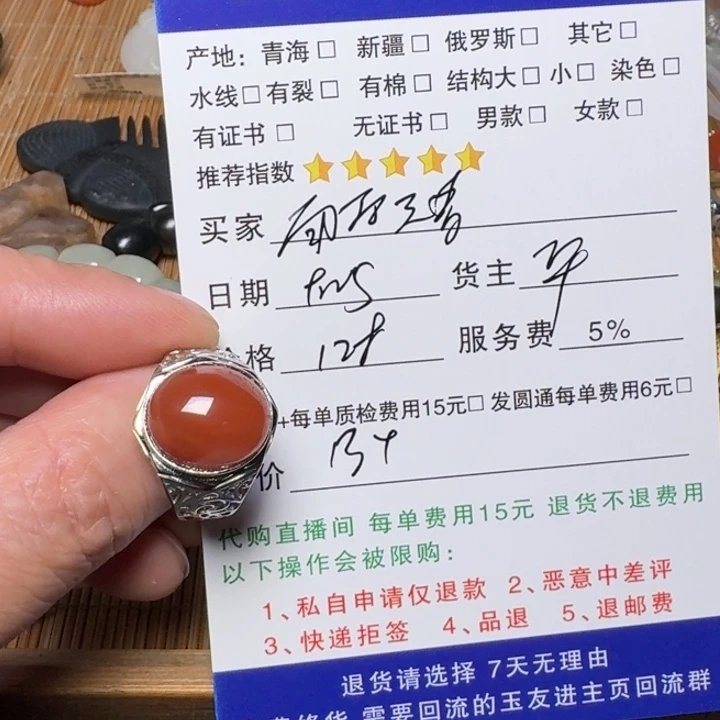 产地：青海□ 新疆□ 俄罗斯□ 其它□
水线□有裂□ 有棉□ 结构大□ 小□ 染色□
有证书□ 无证书□ 男款□ 女款□
推荐指数
买家
日期 货主
格 128 服务费 5%
+每单质检费用15元□ 发圆通每单费用6元□
价
代购直播间 每单费用15元 退货不退费用
以下操作会被限购：
1、私自申请仅退款 2、恶意中差评
3、快递拒签 4、品退 5、退邮费
退货请选择 7天无理由
需要回流的玉友进主页回流群